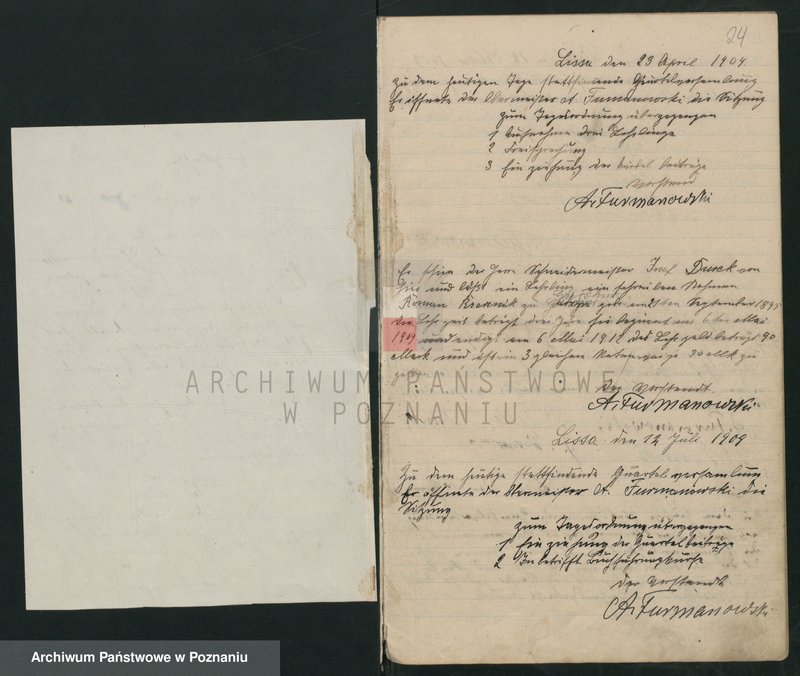 24
Lissa den 23 April 1909.
Zu dem heutigen Tage stattfindende Quartelversamlung
Er öffnete der Obermeister A. Furmanowski die Sitzung
zum Tagesordnung übergegangen
1 Aufnahme drei Lehrlinge
2 Freisprechung
3 Ein ziehung der Quartel beiträge
Vorstand
A. Furmanowski
Er schien der Herr Schneidermeister Josef Dusek von
hier und läßt ein Lehrling ein schreiben Nahmen
Roman zu geb am September 1895
die Lehr zeit beträgt drei Jare sie beginnt am 6 ten Mai
1909 und endigt am 6 Mai 1912 das Lehrgeld beträgt 90
Mark und ist in 3 gleichen Raten zu je 30 Mk zu
Der Vorstandt
A. Furmanowski
Lissa den 12 Juli 1909
Zu dem heutige stattfindende Quartel versamlung
Er öffnete der Obermeister A. Furmanowski die
Sitzung
zum Tagesordnung übergegangen
1 Ein ziehung der Quartel beiträge
2 In betrifft Buchführungskurse
Der Vorstandt
A. Furmanowski
ARCHIWUM PAŃSTWOWE
W POZNANIU
Archiwum Państwowe w Poznaniu